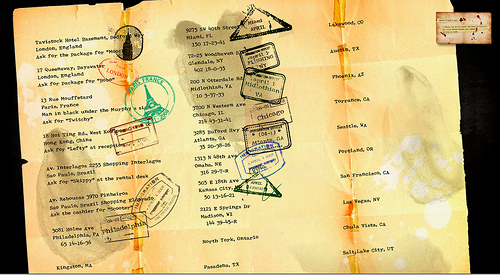 Tavistock Hotel Basement, Bedford
London, England
Ask for the Package for "Moon
17 Queensway, Bayswater
London, England
Ask for Package for "Bobo"
23 Rue Mouffetard
Paris, France
Man in black under the Murphy's sign
Ask for "Twitchy"
18 Hoi Ting Rd, West Kow
Hong Kong, China
Ask for "Lefty" at reception
Av. Interlagos 2255 Shopping Interlagos
Sao Paulo, Brazil
Ask for "Skippy" at the rental desk
Av. Reboucas 3970 Pinheiros
Sao Paulo, Brazil Shopping Eldorado
Ask the cashier for "Scooter"
3081 Holme Ave
Philadelphia, PA
65 14-16-36
Kingston, MA
9275 SW 40th Street
Miami, FL
130 17-23-41
72-25 Woodhaven
Glendale, NY
402 18-6-35
200 N Otterdale Rd
Midlothian, VA
110 3-37-33
3700 N Western Ave
Chicago, IL
214 49-31-41
3285 Buford Hwy NE
Atlanta, GA
35 20-38-26
1313 N 48th Ave
Omaha, NE
316 29-7-8
503 E 18th Ave
Kansas City,
30 13-16-21
2121 E Springs Dr
Madison, WI
144 39-45-8
North York, Ontario
Pasadena, TX
Lakewood, CO
Austin, TX
Phoenix, AZ
Torrance, CA
Seattle, WA
Portland, OR
San Francisco, CA
Las Vegas, NV
Chula Vista, CA
Salt Lake City, UT
LONDON
PARIS FRANCE
Philadelphia
Miami
APRIL 1
Midlothian
VA
Chicago
Atlanta, GA
APRIL